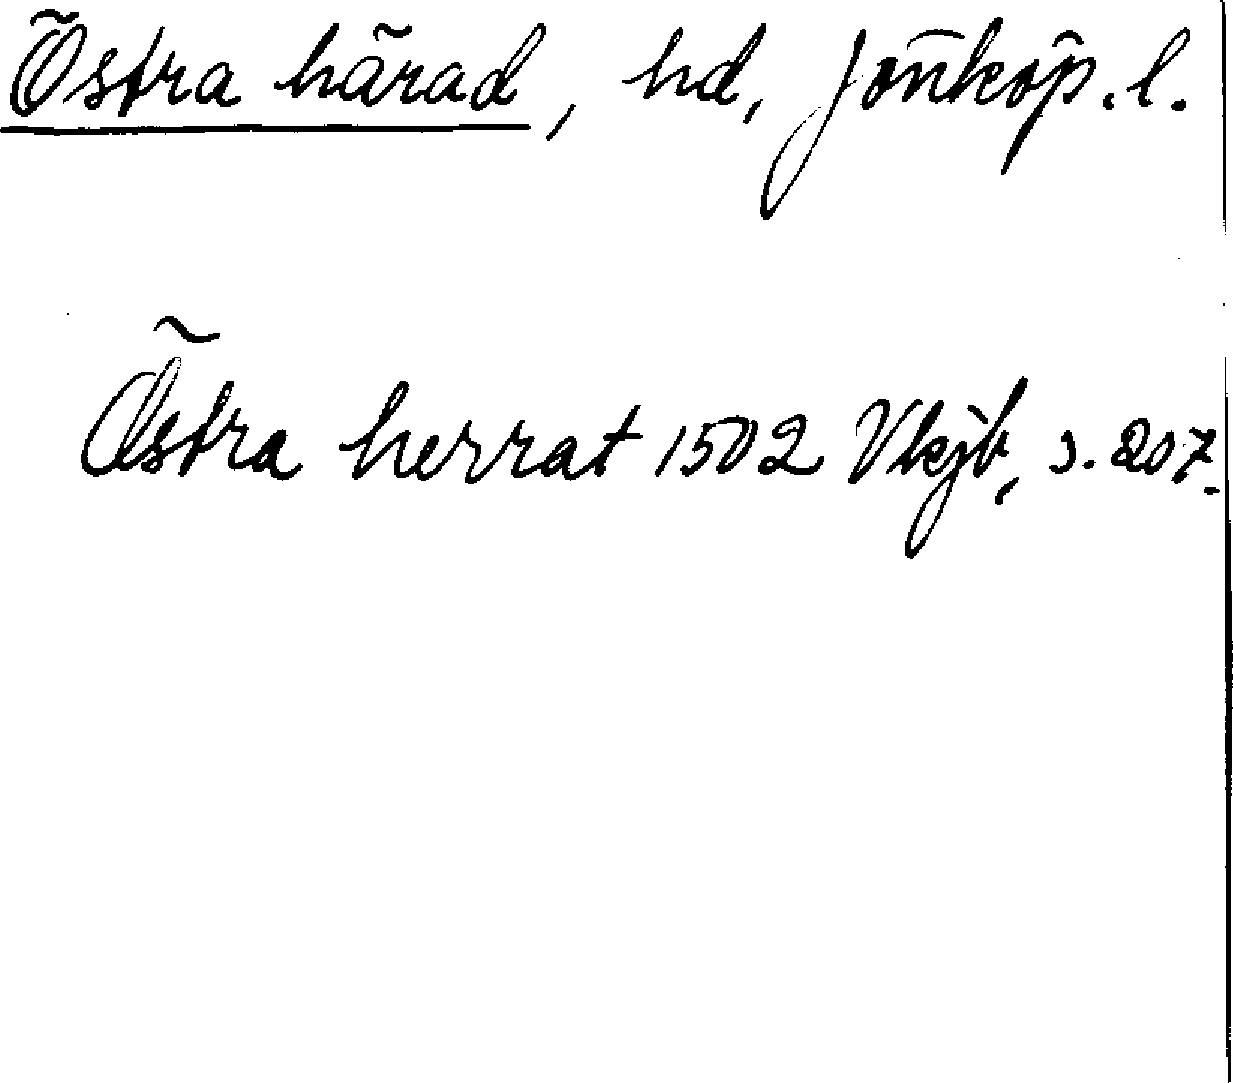 Östra härad, hd, Jönköp. l.
Östra herrat 1502 Vkjb, s. 207.